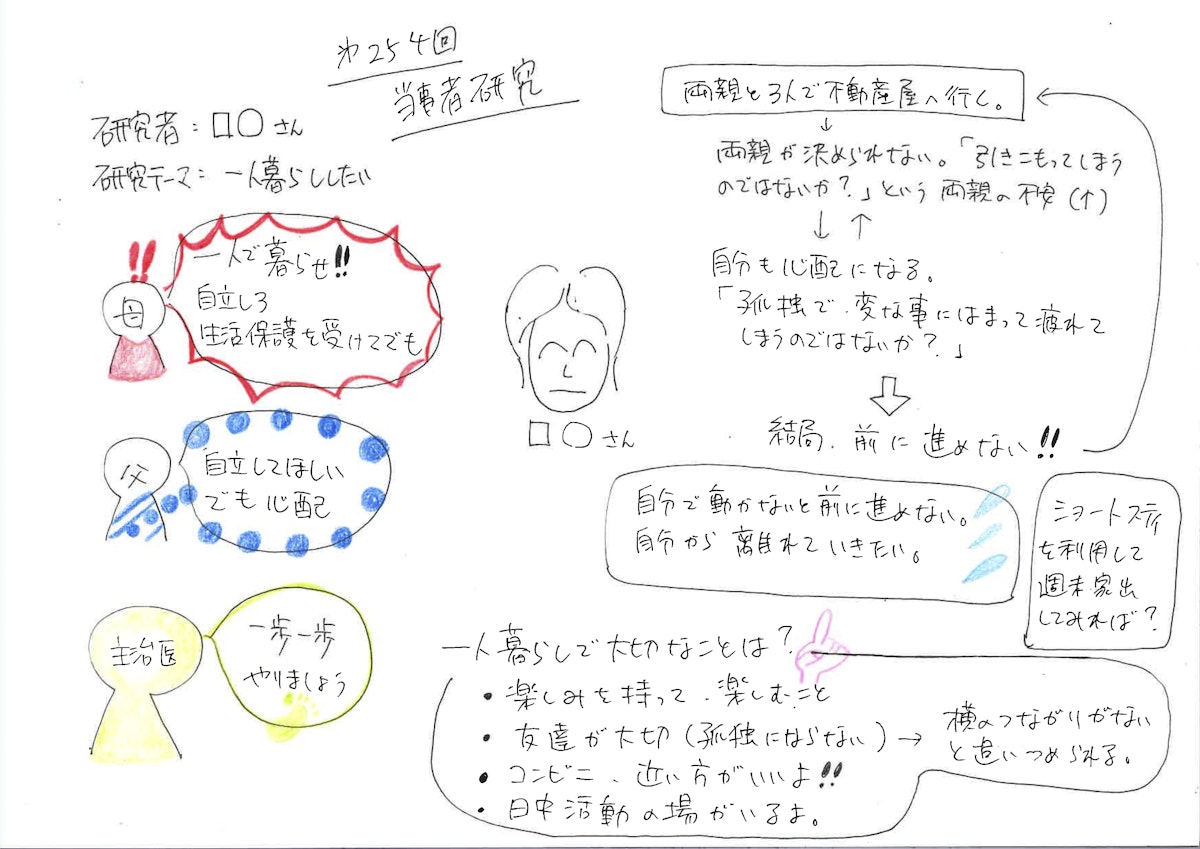 第254回
当事者研究
研究者：□○さん
研究テーマ：一人暮らししたい
一人で暮らせ!!
自立しろ
生活保護を受けてでも
母
自立してほしい
でも心配
父
一歩一歩
やりましょう
主治医
□○さん
両親と3人で不動産屋へ行く。
↓
両親が決められない。「引きこもってしまう
のではないか？」という両親の不安(↑)
↓↑
自分も心配になる。
「孤独で、変な事にはまって疲れて
しまうのではないか？」
結局、前に進めない!!
自分で動かないと前に進めない。
自分から離れていきたい。
ショートスティ
を利用して
週末家出
してみれば？
一人暮らしで大切なことは？
・楽しみを持って、楽しむこと
・友達が大切(孤独にならない)→
・コンビニ、近い方がいいよ!!
・日中活動の場がいるよ。
横のつながりがない
と追いつめられる。